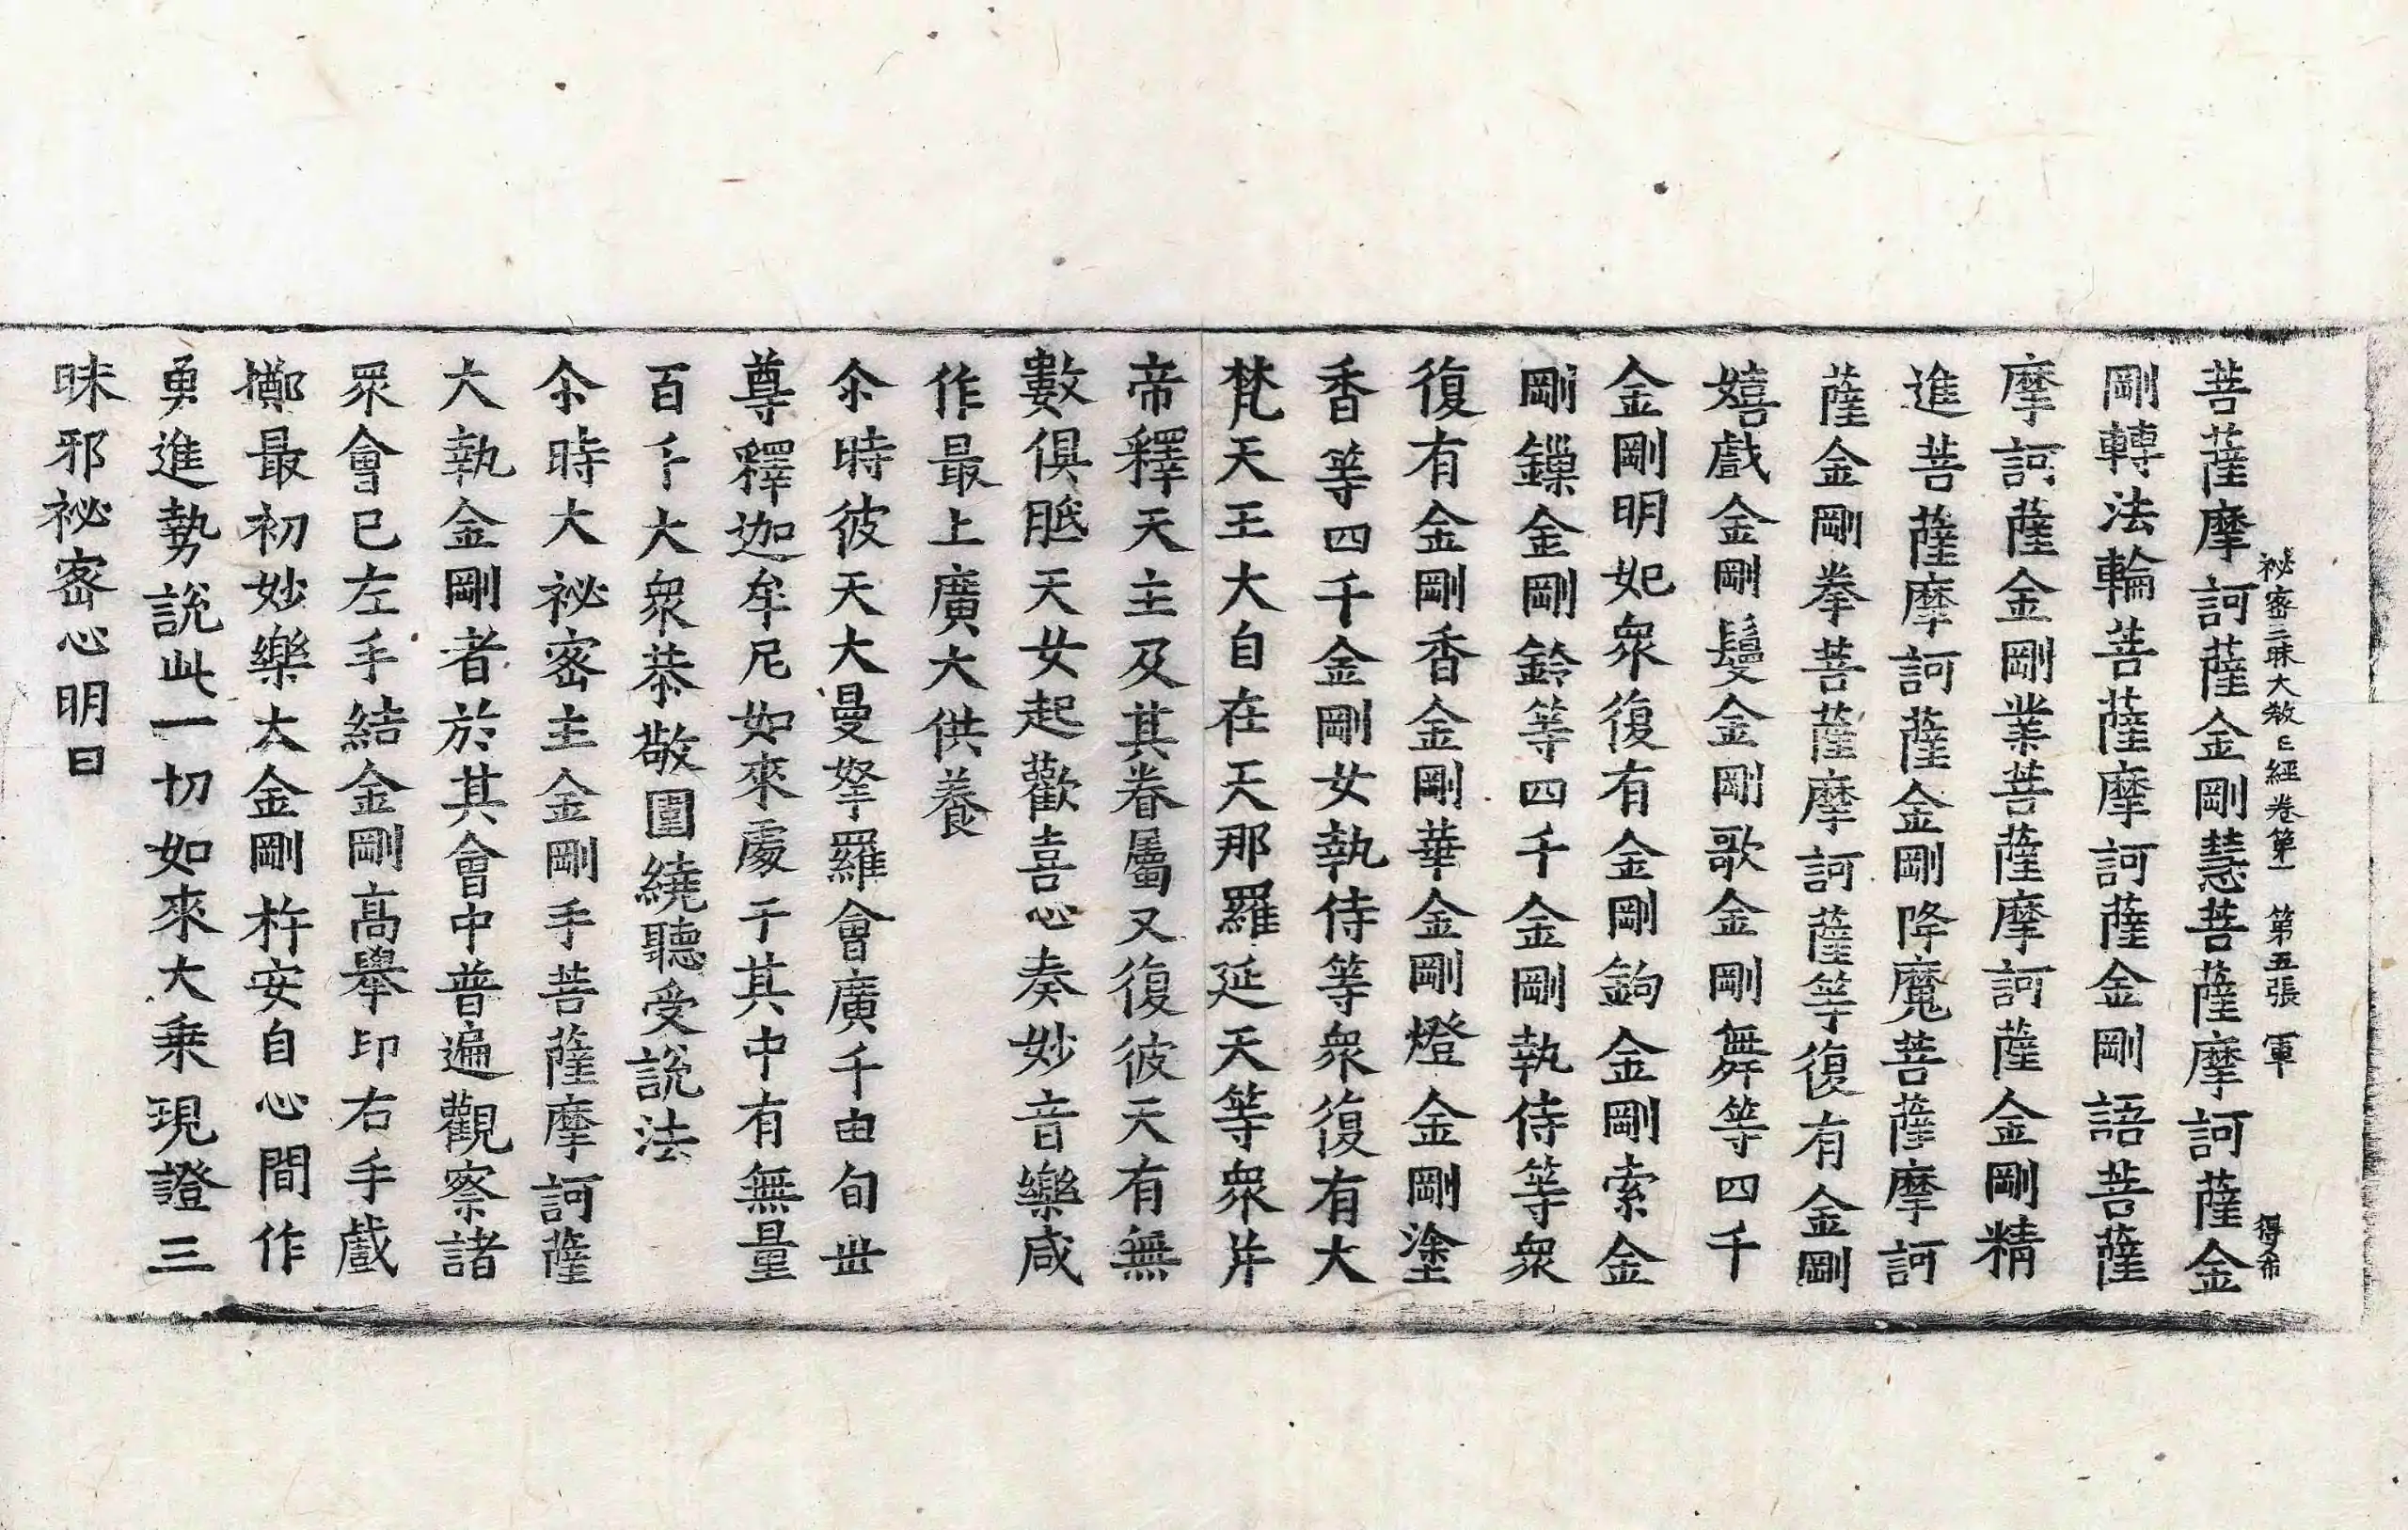 祕密三昧大教王經卷第一　第五張　軍　得希
菩薩摩訶薩金剛慧菩薩摩訶薩金
剛轉法輪菩薩摩訶薩金剛語菩薩
摩訶薩金剛業菩薩摩訶薩金剛精
進菩薩摩訶薩金剛降魔菩薩摩訶
薩金剛拳菩薩摩訶薩等復有金剛
嬉戲金剛鬘金剛歌金剛舞等四千
金剛明妃衆復有金剛鉤金剛索金
剛鏁金剛鈴等四千金剛執侍等衆
復有金剛香金剛華金剛燈金剛塗
香等四千金剛女執侍等衆復有大
梵天王大自在天那羅延天等衆并
帝釋天主及其眷屬又復彼天有無
數俱胝天女起歡喜心奏妙音樂咸
作最上廣大供養
尒時彼天大曼拏羅會廣千由旬丗
尊釋迦牟尼如來處于其中有無量
百千大衆恭敬圍繞聽受說法
尒時大祕密主金剛手菩薩摩訶薩
大執金剛者於其會中普遍觀察諸
眾會已左手結金剛高舉印右手戲
擲最初妙樂大金剛杵安自心間作
勇進勢說此一切如來大乗現證三
昧邪祕密心明曰